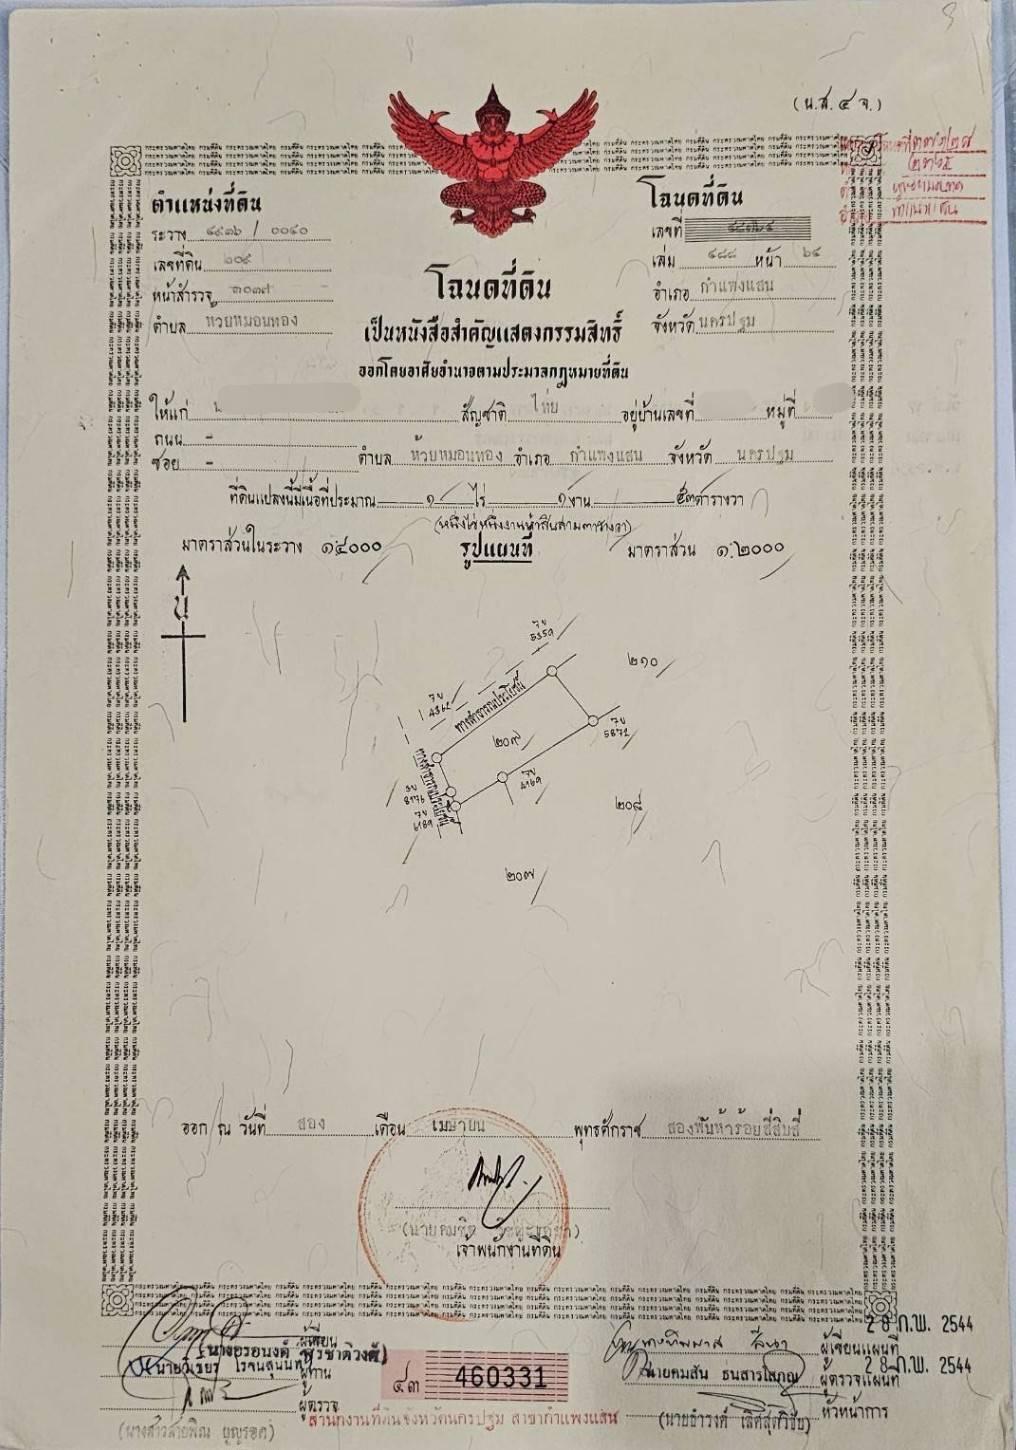 (น.ส. ๔ จ.)
ตำแหน่งที่ดิน
ระวาง ๔๙๓๖ / ๐๐๔๐
เลขที่ดิน ๒๐๙
หน้าสำรวจ ๓๐๓๗
ตำบล ห้วยหมอนทอง
โฉนดที่ดิน
เลขที่
เล่ม ๔๘๘ หน้า ๖๔
อำเภอ กำแพงแสน
จังหวัด นครปฐม
โฉนดที่ดิน
เป็นหนังสือสำคัญแสดงกรรมสิทธิ์
ออกโดยอาศัยอำนาจตามประมวลกฎหมายที่ดิน
ให้แก่ สัญชาติ ไทย อยู่บ้านเลขที่ หมู่ที่
ถนน -
ซอย - ตำบล ห้วยหมอนทอง อำเภอ กำแพงแสน จังหวัด นครปฐม
ที่ดินแปลงนี้มีเนื้อที่ประมาณ ๑ ไร่ ๑ งาน ๕๓ ตารางวา
(หนึ่งไร่หนึ่งงานห้าสิบสามตารางวา)
มาตราส่วนในระวาง ๑:๔๐๐๐ รูปแผนที่ มาตราส่วน ๑:๒๐๐๐
น
7บ
5359
๒๑๐
7บ
ทางสาธารณประโยชน์
๒๐๙
7บ
5872
ทางสาธารณประโยชน์
7บ
4169
8176
7บ
๒๐๘
๒๐๗
ออก ณ วันที่ สอง เดือน เมษายน พุทธศักราช สองพันห้าร้อยสี่สิบสี่
เจ้าพนักงานที่ดิน
28 ก.พ. 2544
ผู้เขียน
ผู้เขียนแผนที่
28 ก.พ. 2544
ผู้ทาน
นายคมสัน ธนสารโสภณ ผู้ตรวจแผนที่
๔๓ 460331
ผู้ตรวจ
หัวหน้าการ
สำนักงานที่ดินจังหวัดนครปฐม สาขากำแพงแสน
(นายธำรงค์ เลิศสุดวิชัย)